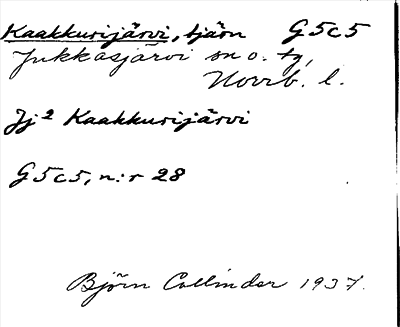 Kaakkurijärvi, tjärn G5c5
Jukkasjärvi sn o. tg,
Norrb. l.
Jj² Kaakkurijärvi
G5c5, n:r 28
Björn Collinder 1937.